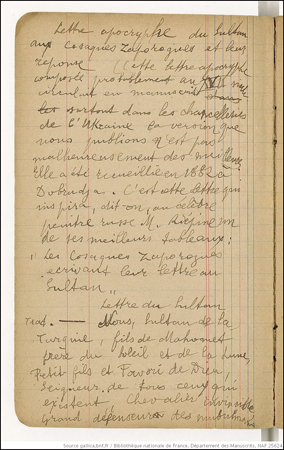 Lettre apocryphe du Sultan
aux Cosaques Zaporogues et leur
réponse. (Cette lettre apocryphe
composée probablement au XVII
circulait en manuscrit
surtout dans les chancelleries
de l'Ukraine la version que
nous publions n'est pas
malheureusement des meilleures.
Elle a été recueillie en 1882 à
Dobrudja. C'est cette lettre qui
inspira, dit-on, au célèbre
peintre russe M. Riépine un
de ses meilleurs tableaux:
"Les Cosaques Zaporogues
écrivant leur lettre au
Sultan"
Lettre du Sultan
Trad. — Nous, Sultan de la
Turquie, fils de Mahomet
frère du soleil et de la lune,
Petit fils et de Dieu,
Seigneur de tous ceux qui
existent, Chevalier invincible
Grand défenseur des
Source gallica.bnf.fr / Bibliothèque nationale de France, Département des Manuscrits, NAF 25624